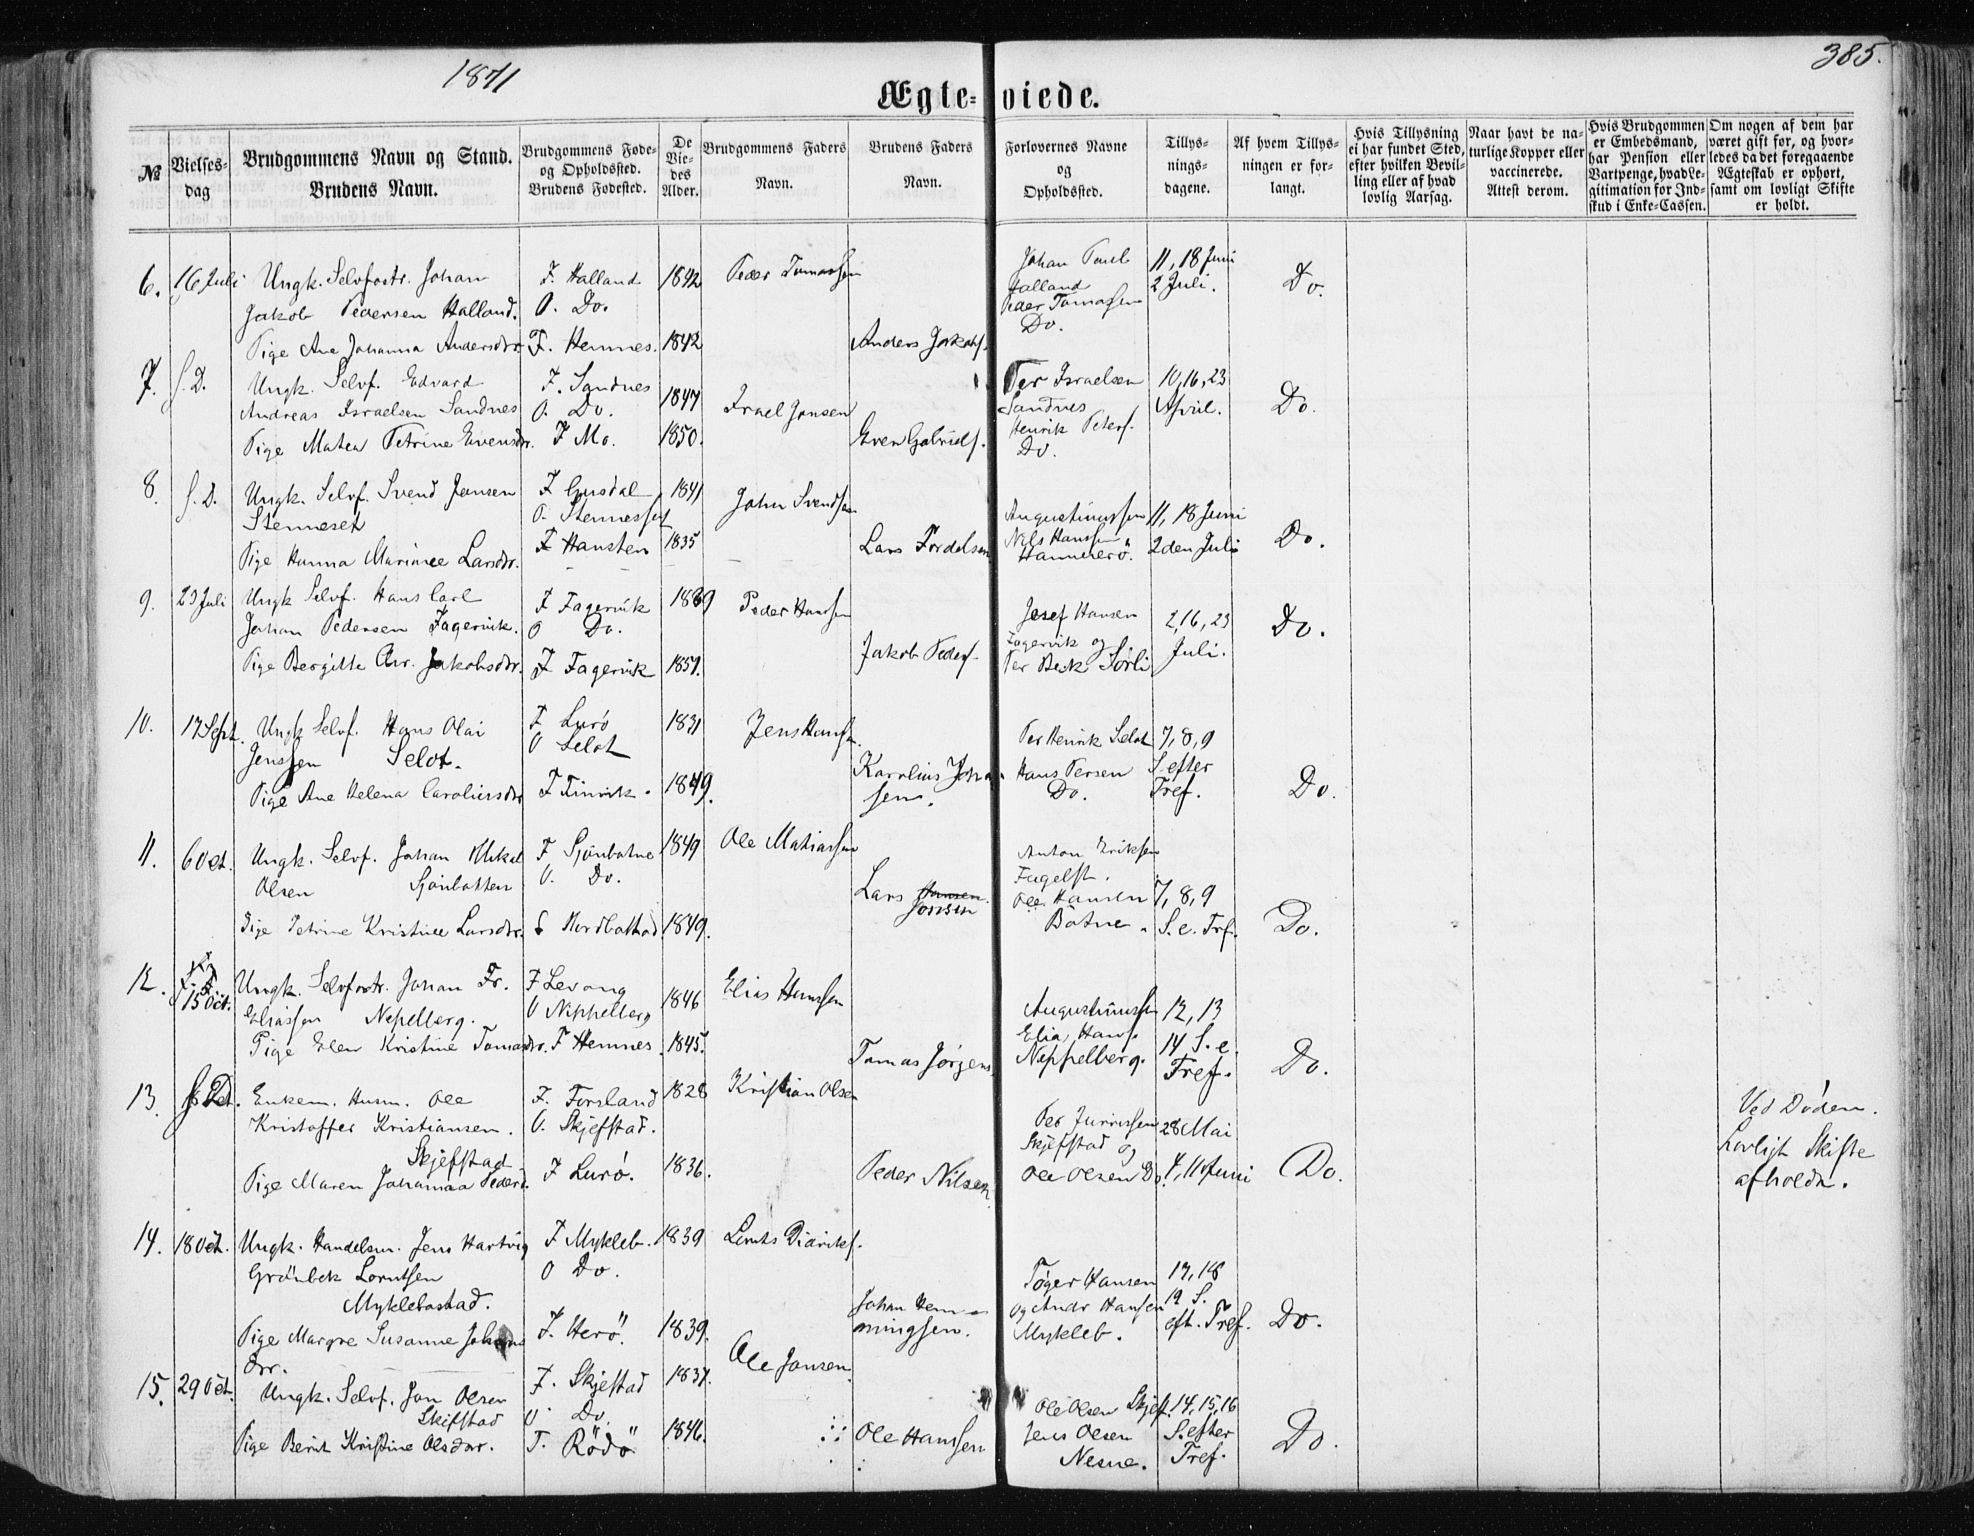 1871
385.
Ægte-viede.
№
Vielses-
dag
Brudgommens Navn og Stand.
Brudens Navn.
Brudgommens Føde-
og Opholdssted.
Brudens Fødested.
De
Vie-
des
Alder.
Brudgommens Faders
Navn.
Brudens Faders
Navn.
Forlovernes Navne
og
Opholdssted.
Tillys-
nings-
dagene.
Af hvem Tillys-
ningen er for-
langt.
Hvis Tillysning
ei har fundet Sted,
efter hvilken Bevil-
ling eller af hvad
lovlig Aarsag.
Naar havt de na-
turlige Kopper eller
vaccinerede.
Attest derom.
Hvis Brudgommen
er Embedsmand,
har Pension eller
Vartpenge, hvad Le-
gitimation for Ind-
skud i Enke-Cassen.
Om nogen af dem har
været gift før, og hvor-
ledes da det foregaaende
Ægteskab er ophørt,
samt om lovligt Skifte
er holdt.
6. 16 Juli Ungk. Selvfostr. Johan F. Halland 1842 Peder Tomassen Johan Paul 11, 18 Juni Do.
Jakob Pedersen Halland. O. Do. Halland 2 Juli.
Peder Tomassen
Do.
Pige Ane Johanna Andersdtr. F. Hemnes. 1842 Anders Jakobs.
7. S. D. Ungk. Selvf. Edvard F. Sandnes 1847 Israel Jonsen Per Israelsen 10, 16, 23 Do.
Andreas Israelsen Sandnes O. Do. Sandnes April.
Henrik Peters.
Pige Matea Petrine Evensdr. F Mo. 1850. Even Gabriels. Do.
8. S. D. Ungk. Selvf. Svend Jansen F 1841 John Svendsen Augustinussen 11, 18 Juni Do.
Stenneset O. Nils Hanssen 2 den Juli
Pige Hanna Larsdr. F 1835 Lars Hammerö.
9. 23 Juli Ungk Selvf. Hans Carl F Fagervik 1839 Peder Hansen Josef Hansen 2, 16, 23 Do.
Johan Pedersen Fagervik. O Do. Fagervik og Juli.
Pige Bergitte Chr. Jakobsdr. F Fagervik 1851. Jakob Peders. Per Beck Sörli
10. 17 Sept. Ungk Selvf. Hans Olai F Lurö 1831 Jens Hansen Per Henrik Selot 7, 8, 9
Jenssen Selot. O Selot Hans Persen S. efter Do.
Pige Ane Helena Caroliusdtr F Finvik. 1849. Karolius Johan- Do. Tref.
sen.
11. 6 Oct. Ungk. Selvf. Johan Mikal F Sjönbotne 1849 Ole Matiassen Anton Eriksen
Olsen Sjönbotten O. Do. Fugelst.
Lars Hansen Ole Hansen 7, 8, 9
Jonsen Botne. S. e. Trf. Do.
Pige Petrine Kristine Larsdtr. 1849.
12. 15 Oct. Ungk. Selvfostr. Johan Fr. F Levang 1846 Elias Hanssen Augustinussen 12, 13
Eliassen Neppelberg. O Neppelberg Elia Hans. 14 S. e.
Pige Elen Kristine Tomasdr. F Hemnes. 1845. Tomas Jörgens. Neppelberg. Tref. Do.
13. Enkem. Husm. Ole F. Forsland 1828 Kristian Olsen
Kristoffer Kristiansen. O. Skjefstad. 28 Mai
Skjefstad Skjefstad og
Pige Maren Johanna Pedersd. F Lurö. 1836. Peder Nilsen Ole Olsen Do. 4, 11 Juni Do.
Ved Döden.
Lovligt Skifte
afholdn.
14. 18 Oct. Ungk. Handelsm. Jens Hartvig F Mykleb. 1839 Lornts Didriks.
Grönbek Lorntsen O Do. Töger Hansen 17, 18
Myklebostad. Johan Hem- og Andr Hansen 19 S.
Pige Margre Susanne Johans F. Herö. 1839. mingsen. Mykleb. eft. Tref. Do.
dtr.
15. 29 Oct. Ungk. Selvf. Jon Olsen F. Skjefstad 1837. Ole Jonsen Ole Olsen Skjefst. 14, 15, 16
Skifstad O. Do. Jens Olsen S. efter Do.
Pige Berit Kristine Olsdtr. F. Rödö 1846. Ole Hanssen Nesne. Tref.